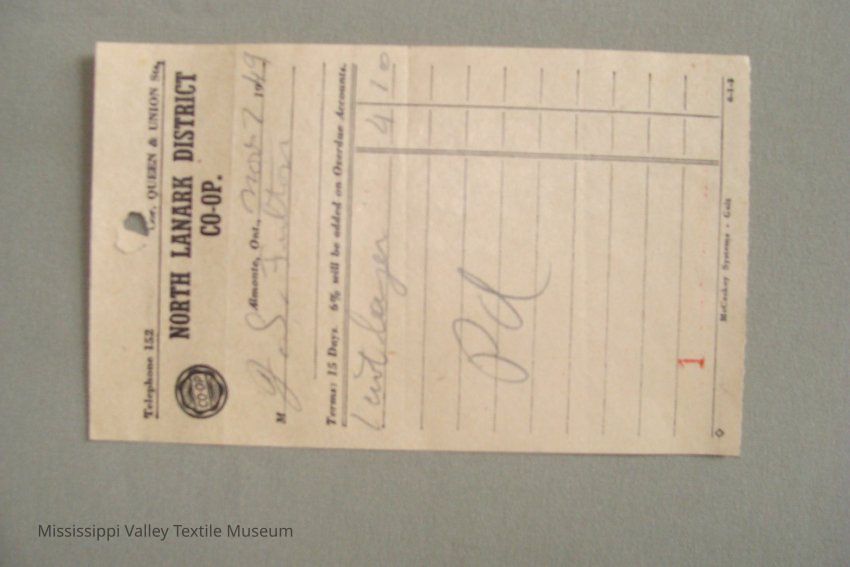 Telephone 152 Cor. QUEEN & UNION Sts.
NORTH LANARK DISTRICT
CO-OP.
CO-OP
Almonte, Ont., Nov 2 1949
M G. S. Fulton
Terms: 15 Days. 6% will be added on Overdue Accounts.
1 cwt layer 4 10
Pd
1
McCaskey Systems - Galt
Mississippi Valley Textile Museum